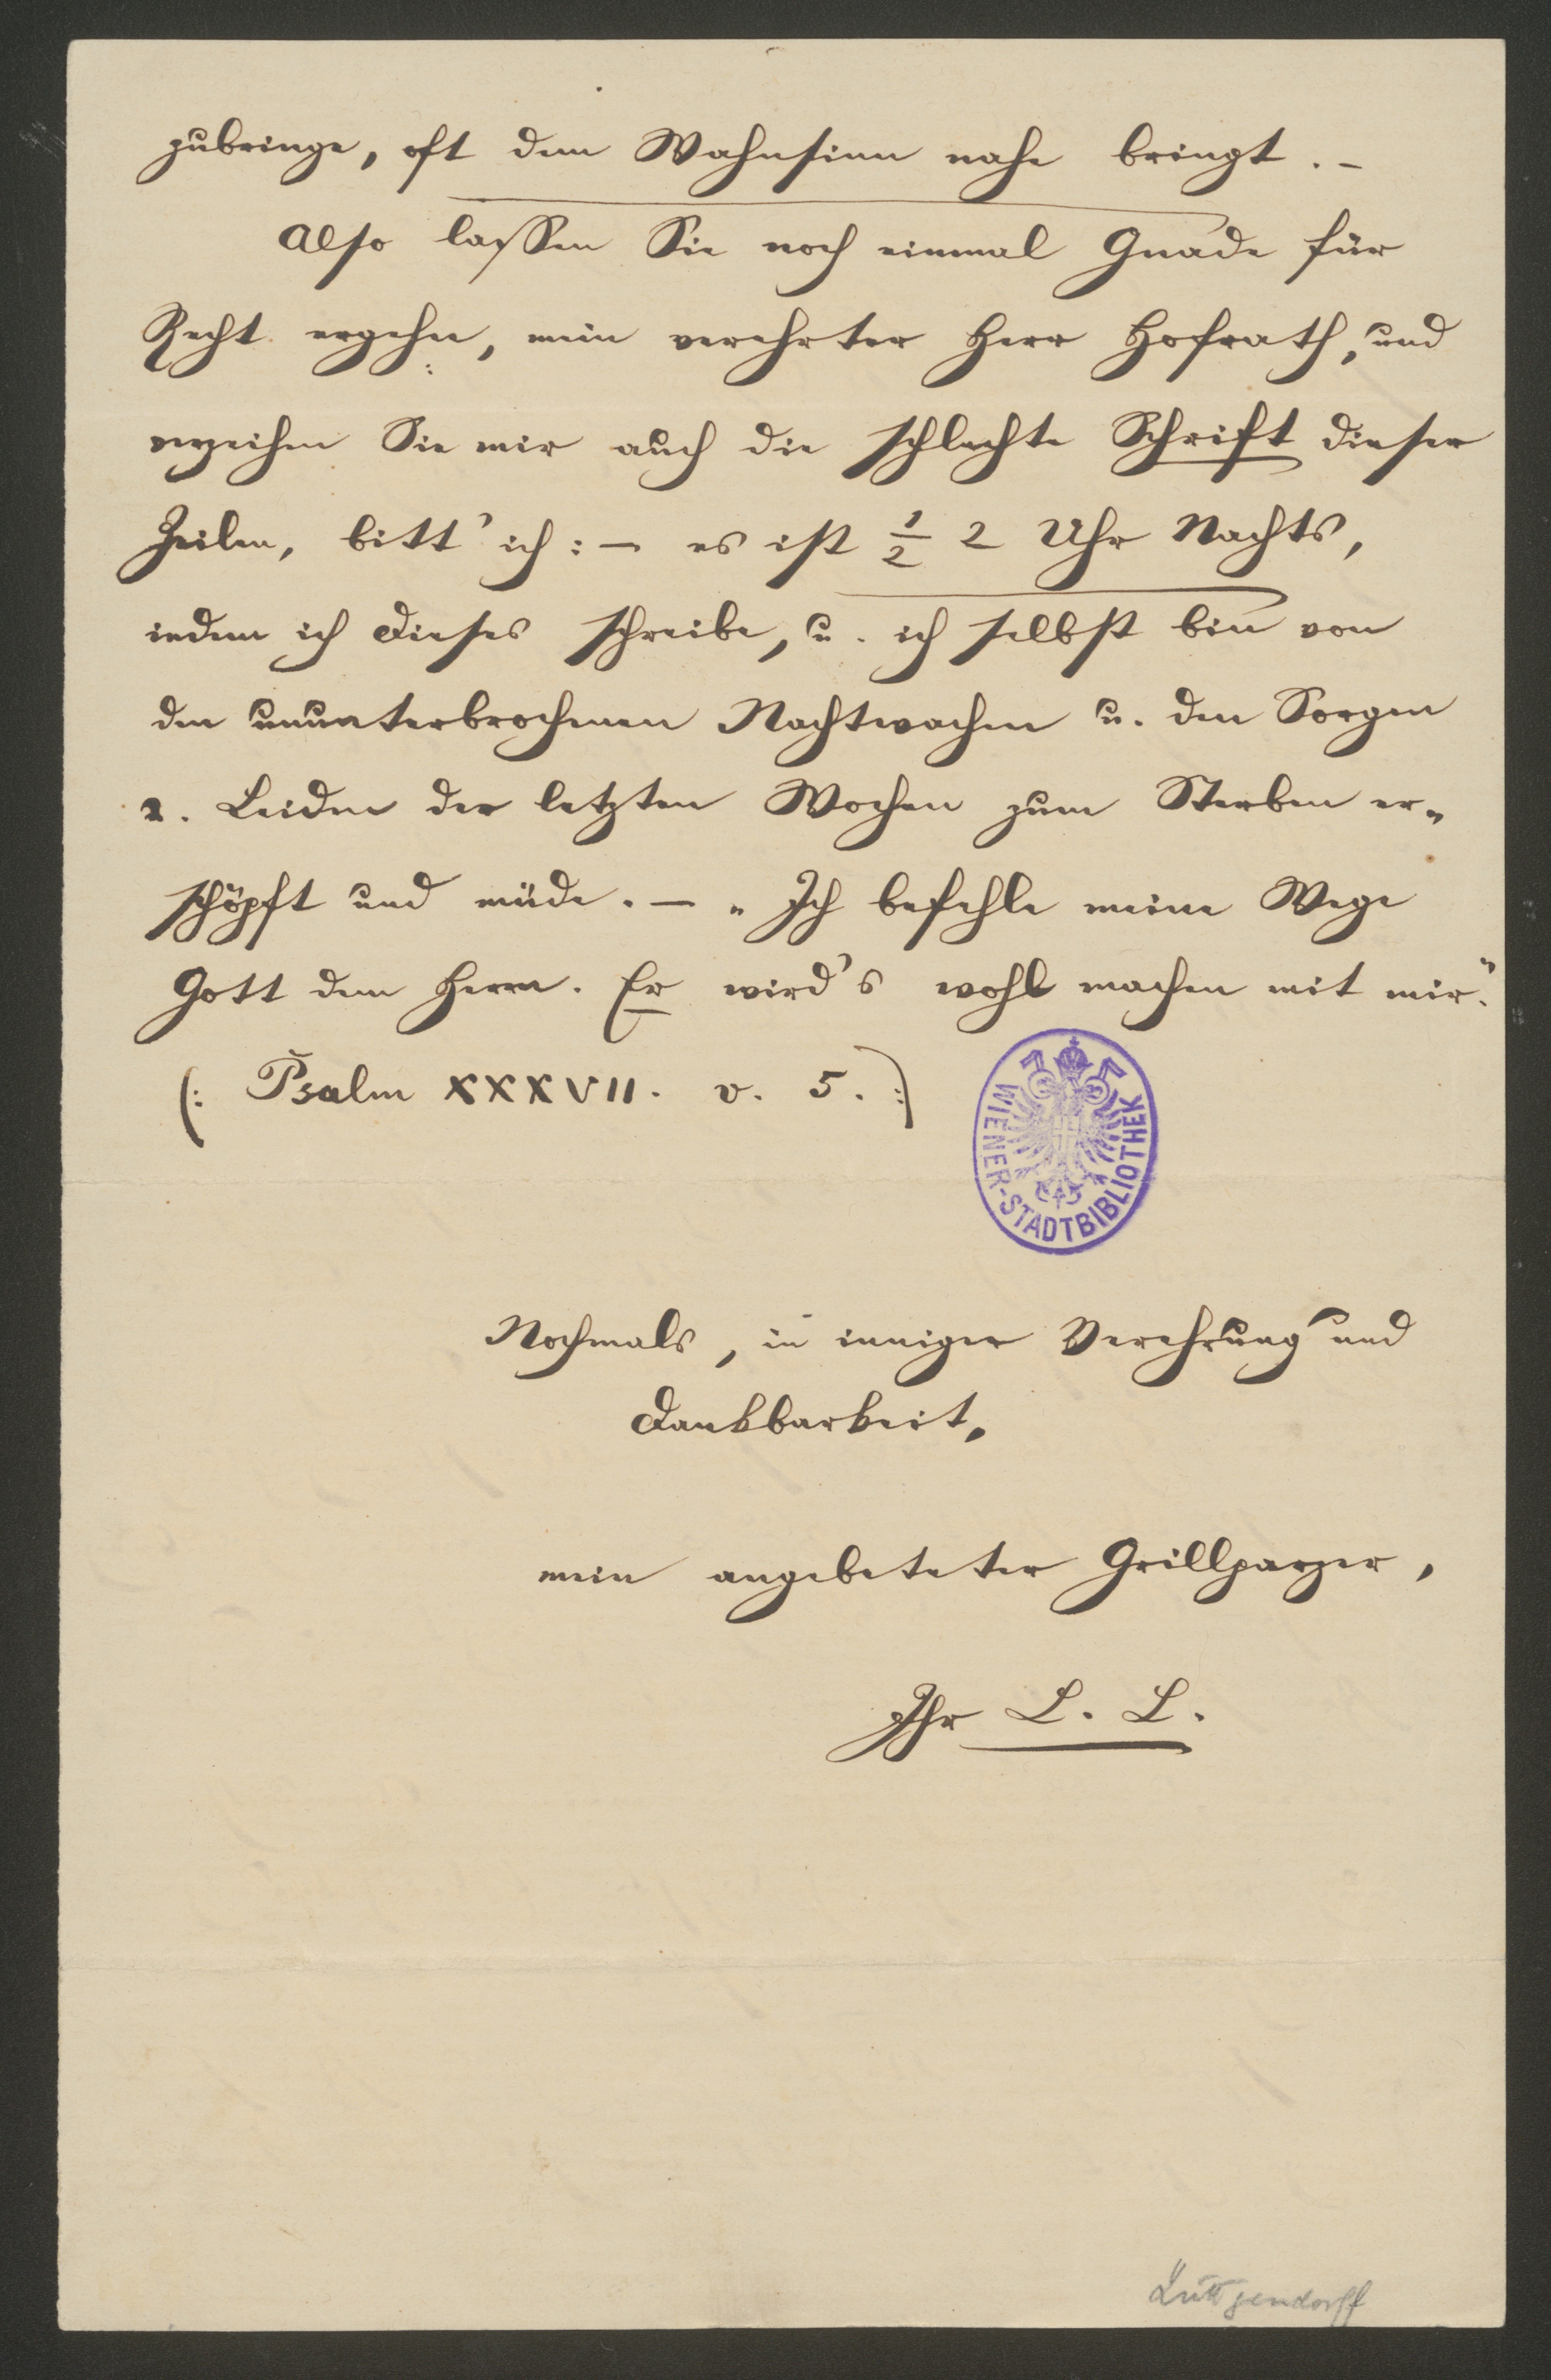 zubringe, oft dem Wahnsinn nahe bringt. –
Also lassen Sie noch einmal Gnade für
Recht ergehn, mein verehrter Herr Hofrath, und
verzeihen Sie mir auch die schlechte Schrift dieser
Zeilen, bitt' ich: – es ist ½ 2 Uhr Nachts,
indem ich dieses schreibe, u. ich selbst bin von
den ununterbrochenen Nachtwachen u. den Sorgen
u. Leiden der letzten Wochen zum Sterben er„
schöpft und müde. – „Ich befehle meine Wege
Gott dem Herrn. Er wird's wohl machen mit mir."
(: Psalm XXXVII. v. 5. :)
WIENER-STADTBIBLIOTHEK
Nochmals, in inniger Verehrung und
Dankbarkeit,
mein angebeteter Grillparzer,
Ihr L. L.
Lüttgendorff